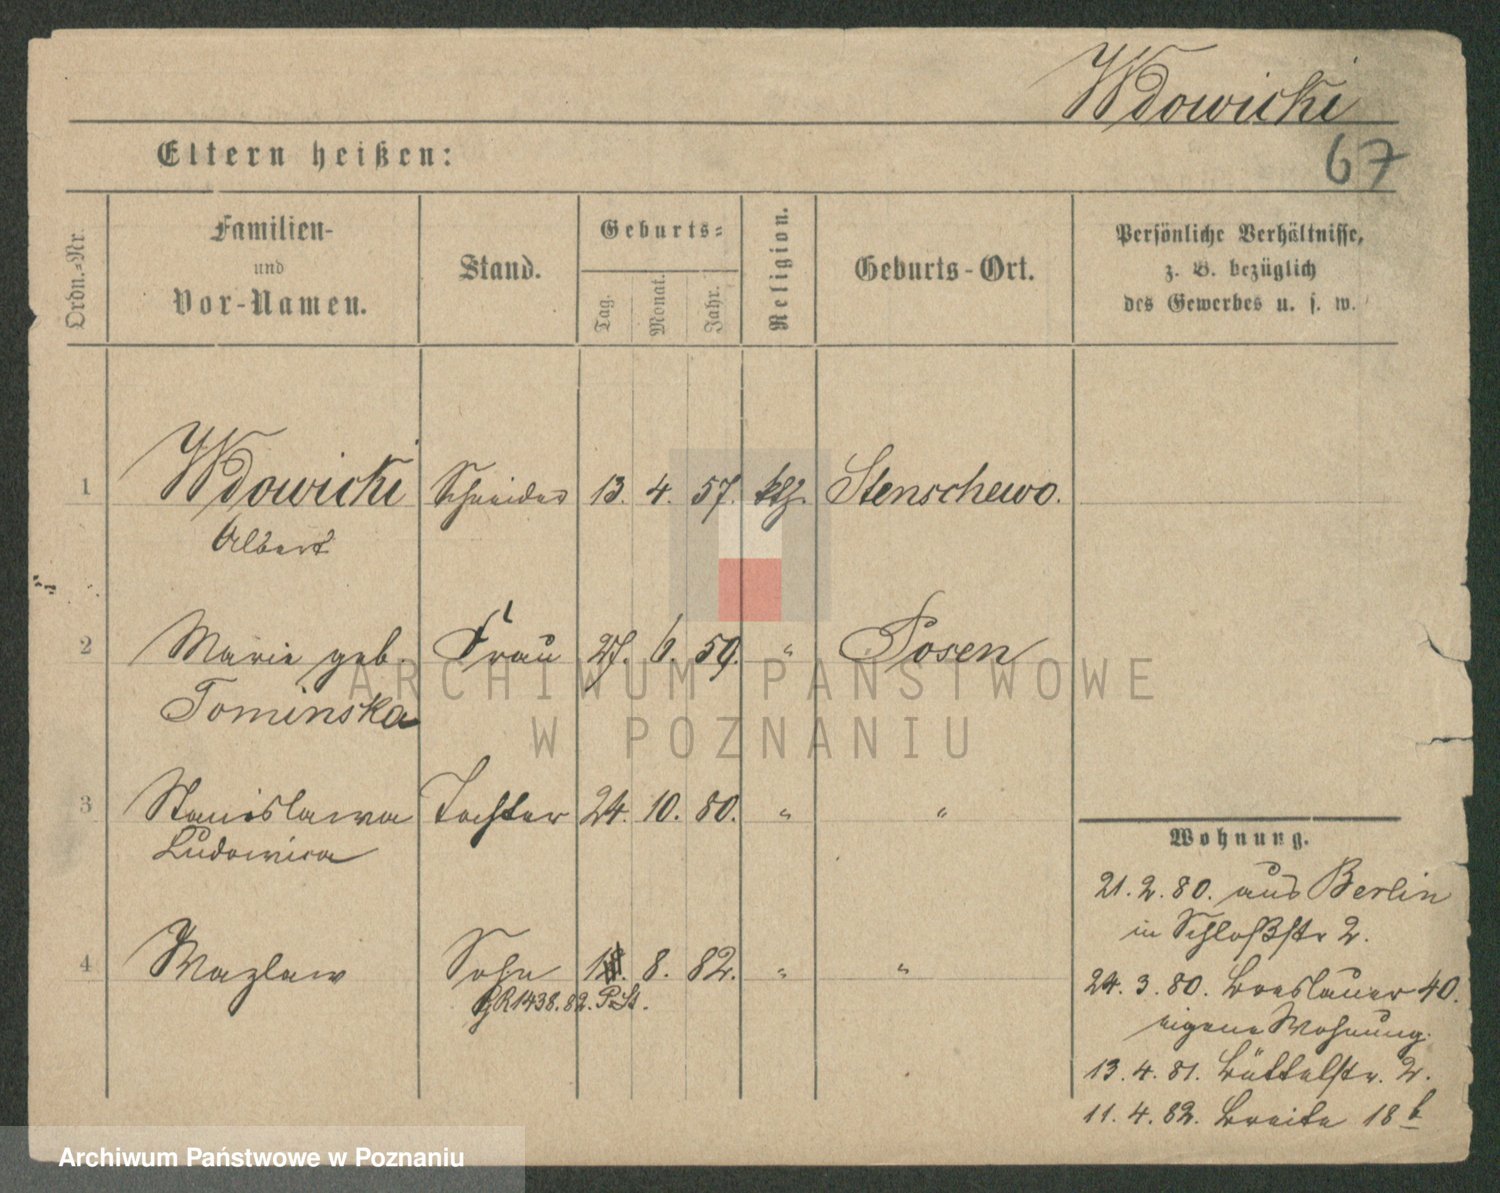 Wdowicki
67
Eltern heißen:
Ordn.-Nr.
Familien-
und
Vor-Namen.
Stand.
Geburts-
Tag.
Monat.
Jahr.
Religion.
Geburts-Ort.
Persönliche Verhältnisse,
z. B. bezüglich
des Gewerbes u. s. w.
1 Wdowicki Schneider 13. 4. 57. kth. Stenschewo.
Albert
2 Marie geb. Frau 27. 6. 59. " Posen
Tominska
3 Stanislawa Tochter 24. 10. 80. " "
Ludowica
4 Wazlaw Sohn 8. 82. " "
GR 1438. 82. P. St.
Wohnung.
21. 2. 80. aus Berlin
in Schloßstr 2.
24. 3. 80. Breslauer 40.
eigene Wohnung.
13. 4. 81. Büttelstr. 2.
11. 4. 82. Breite 18 b
ARCHIWUM PAŃSTWOWE
W POZNANIU
Archiwum Państwowe w Poznaniu